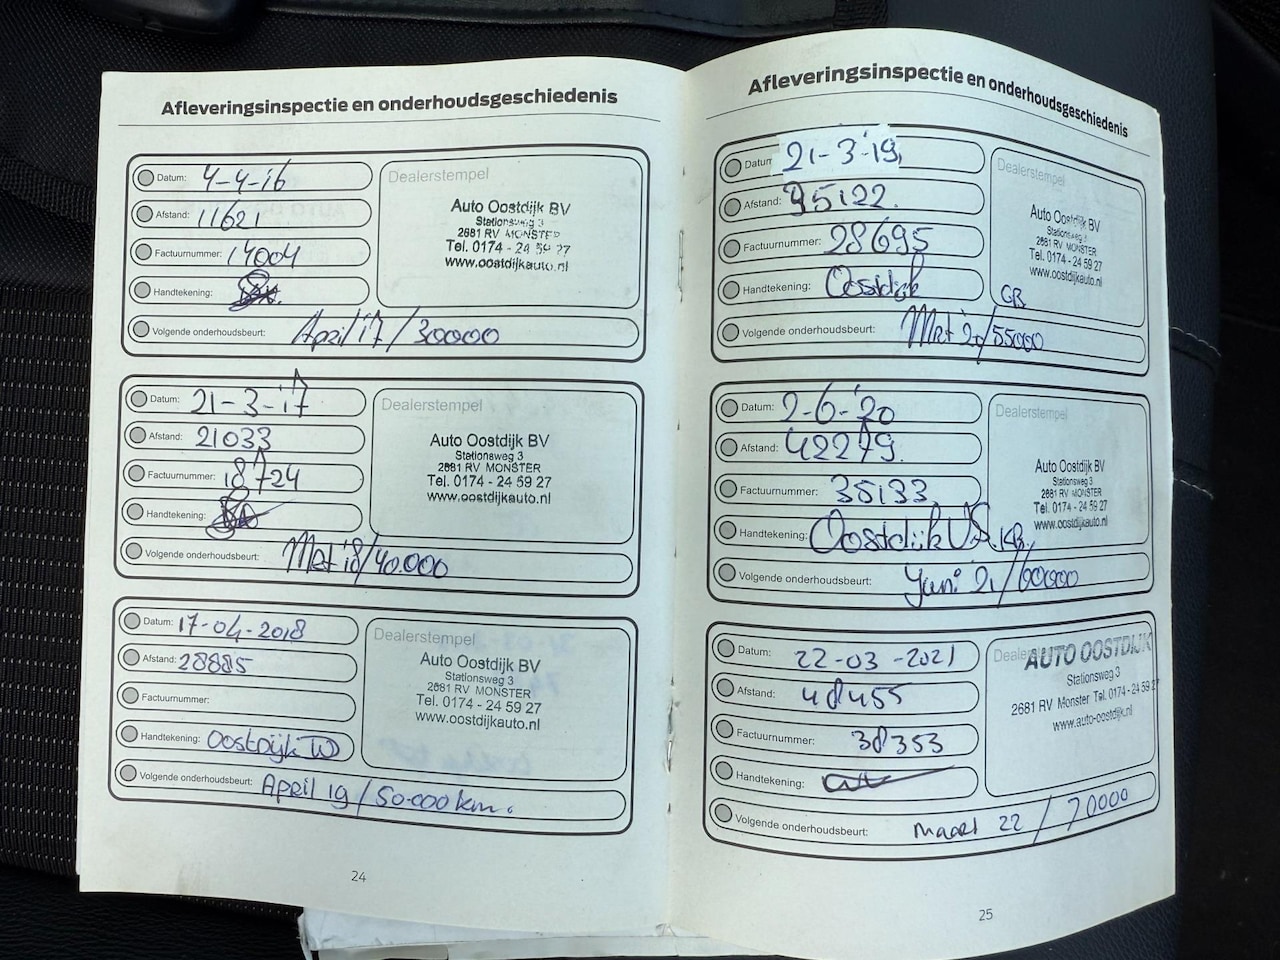 Afleveringsinspectie en onderhoudsgeschiedenis
Datum: 4-4-'16
Afstand: 11621
Factuurnummer: 14004
Handtekening:
Volgende onderhoudsbeurt: April '17 / 30000
Dealerstempel
Auto Oostdijk BV
Stationsweg 3
2681 RV MONSTER
Tel. 0174 - 24 59 27
www.oostdijkauto.nl
Datum: 21-3-'17
Afstand: 21033
Factuurnummer: 18724
Handtekening:
Volgende onderhoudsbeurt: Mrt '18/40.000
Dealerstempel
Auto Oostdijk BV
Stationsweg 3
2681 RV MONSTER
Tel. 0174 - 24 59 27
www.oostdijkauto.nl
Datum: 17-04-2018
Afstand: 28885
Factuurnummer:
Handtekening: Oostdijk
Volgende onderhoudsbeurt: April 19 / 50.000 km.
Dealerstempel
Auto Oostdijk BV
Stationsweg 3
2681 RV MONSTER
Tel. 0174 - 24 59 27
www.oostdijkauto.nl
24
Afleveringsinspectie en onderhoudsgeschiedenis
Datum 21-3-'19
Afstand: 35122.
Factuurnummer: 28695
Handtekening: Oostdijk
Volgende onderhoudsbeurt: Mrt '20/55000
Dealerstempel
Auto Oostdijk BV
Stationsweg 3
2681 RV MONSTER
Tel. 0174 - 24 59 27
www.oostdijkauto.nl
GB
Datum: 2-6-'20
Afstand: 42279.
Factuurnummer: 35133
Handtekening: Oostdijk
Volgende onderhoudsbeurt: Juni 21/60000
Dealerstempel
Auto Oostdijk BV
Stationsweg 3
2681 RV MONSTER
Tel. 0174 - 24 59 27
www.oostdijkauto.nl
Datum: 22-03-2021
Afstand: 48455
Factuurnummer: 38353
Handtekening:
Volgende onderhoudsbeurt: maart 22 / 70000
Deale
AUTO OOSTDIJK
Stationsweg 3
2681 RV Monster Tel. 0174 - 24 59 27
www.auto-oostdijk.nl
25